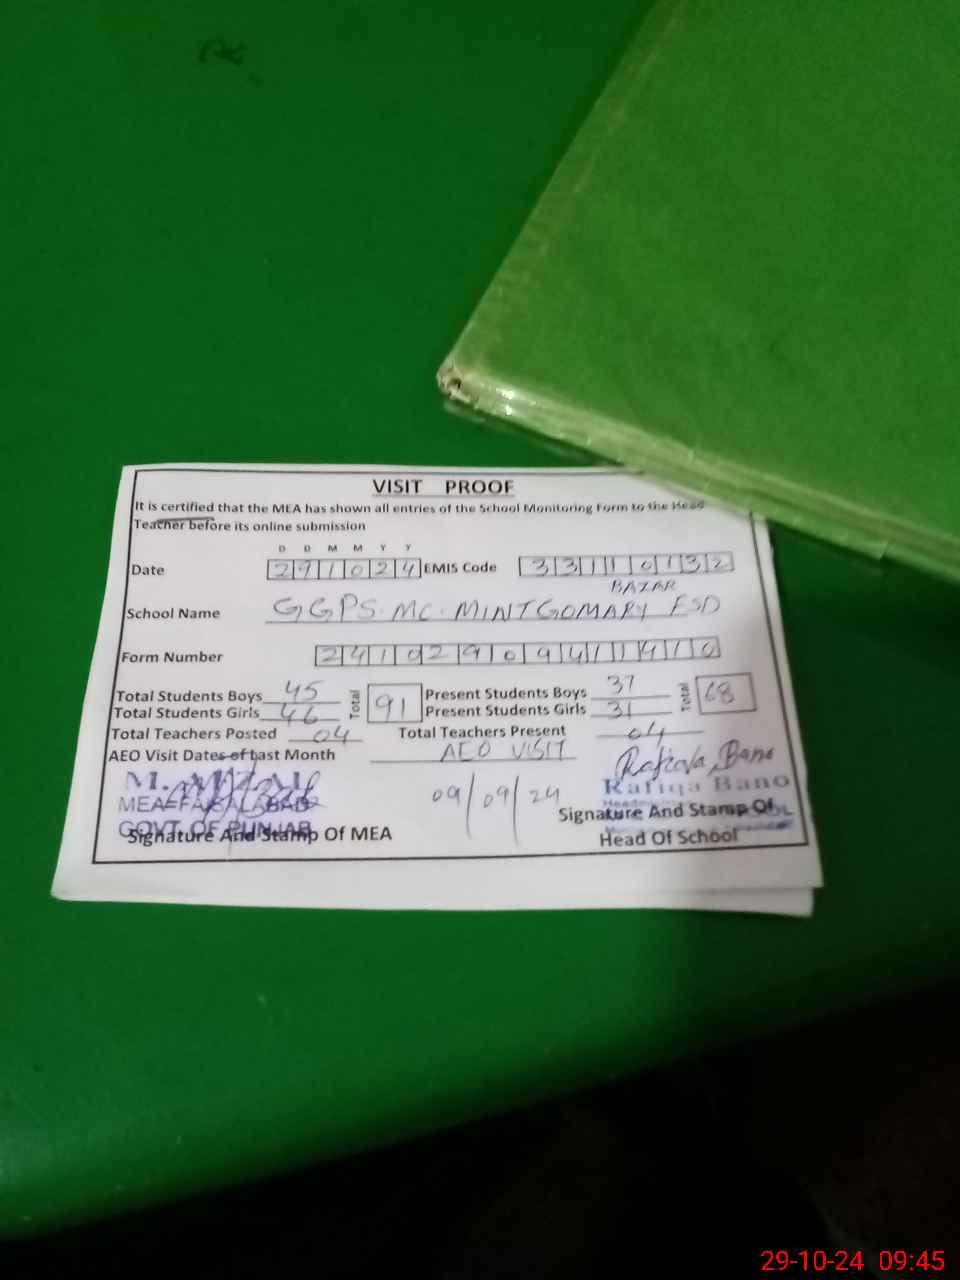 VISIT PROOF
It is certified that the MEA has shown all entries of the School Monitoring Form to the Head
Teacher before its online submission
D D M M Y Y
Date 291024 EMIS Code 33110132
BAZAR
School Name GGPS. MC. MINTGOMARY FSD
Form Number 24102909411410
Total Students Boys 45 Total 91 Present Students Boys 37 Total 68
Total Students Girls 46 Present Students Girls 31
Total Teachers Posted 04 Total Teachers Present 04
AEO Visit Dates of Last Month AEO VISIT
09/09/24
Rafiqa Bano
Rafiqa Bano
MEA-FAISALABAD
GOVT. OF PUNJAB
Signature And Stamp Of MEA
Signature And Stamp Of
Head Of School
29-10-24 09:45